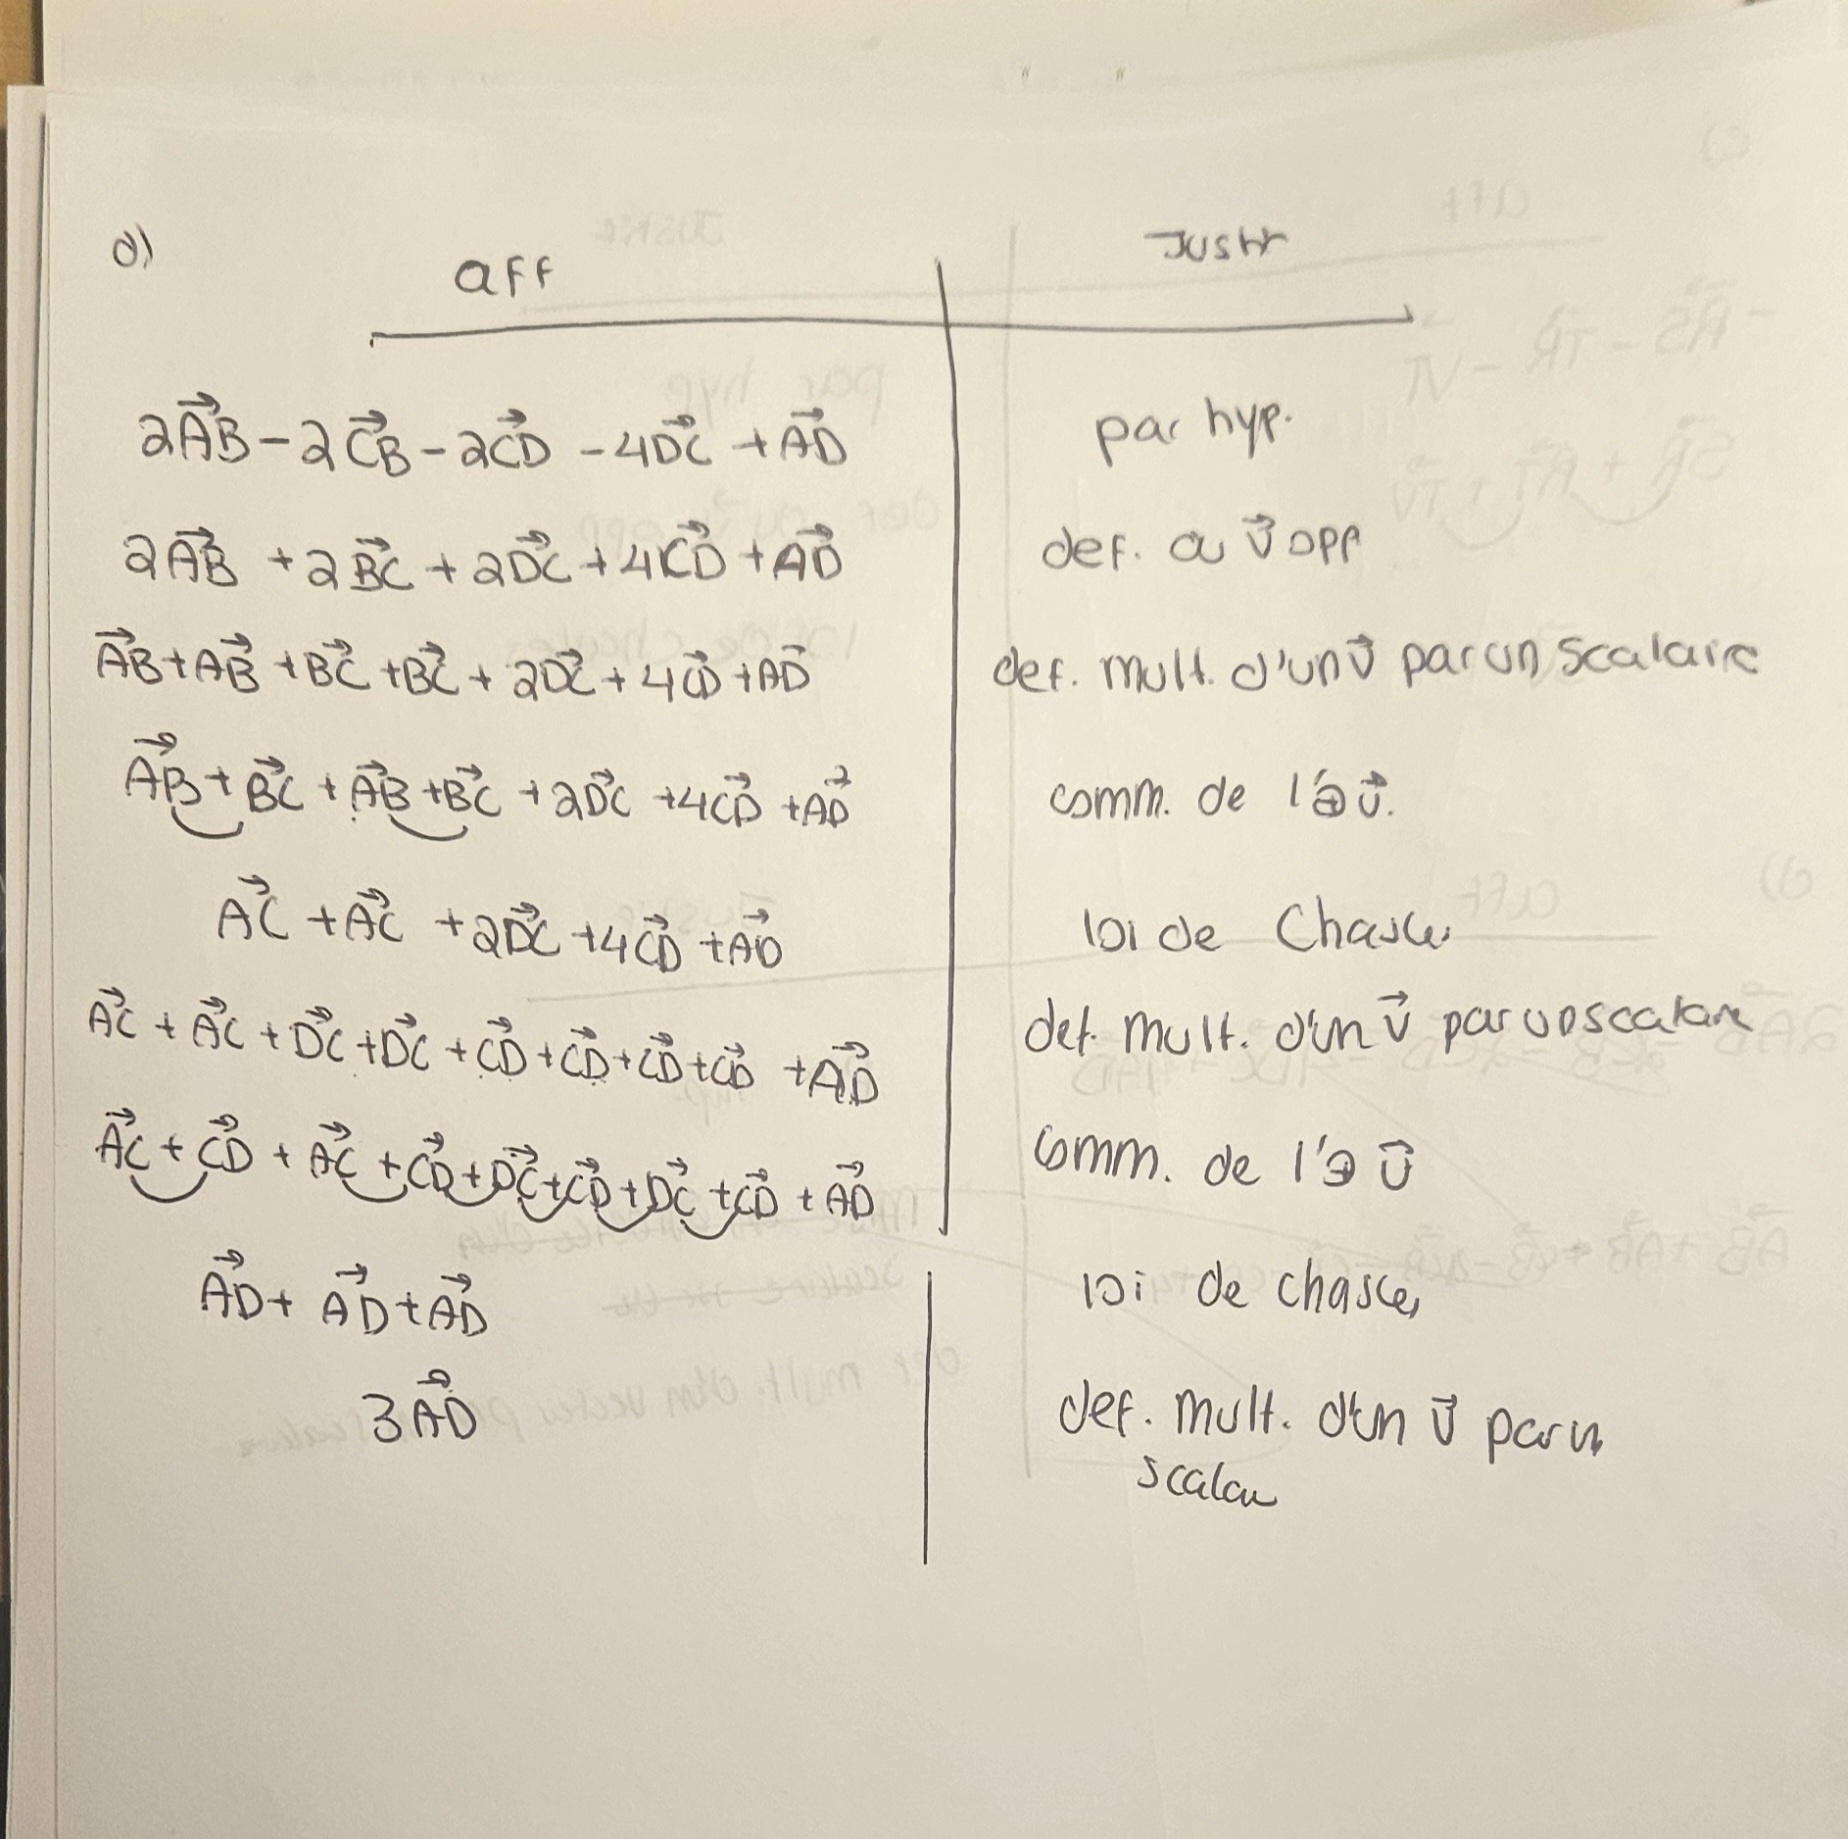 d)
aff Justif
2A⃗B - 2C⃗B - 2C⃗D - 4D⃗C + A⃗D par hyp.
2A⃗B + 2B⃗C + 2D⃗C + 4C⃗D + A⃗D def. du v⃗ opp
A⃗B + A⃗B + B⃗C + B⃗C + 2D⃗C + 4C⃗D + A⃗D def. mult. d'un v⃗ par un scalaire
A⃗B + B⃗C + A⃗B + B⃗C + 2D⃗C + 4C⃗D + A⃗D comm. de l'⊕ v⃗.
A⃗C + A⃗C + 2D⃗C + 4C⃗D + A⃗D loi de Chasles
A⃗C + A⃗C + D⃗C + D⃗C + C⃗D + C⃗D + C⃗D + C⃗D + A⃗D def. mult. d'un v⃗ par un scalaire
A⃗C + C⃗D + A⃗C + C⃗D + D⃗C + C⃗D + D⃗C + C⃗D + A⃗D comm. de l'⊕ v⃗
A⃗D + A⃗D + A⃗D loi de chasles
3A⃗D def. mult. d'un v⃗ par un
scalaire